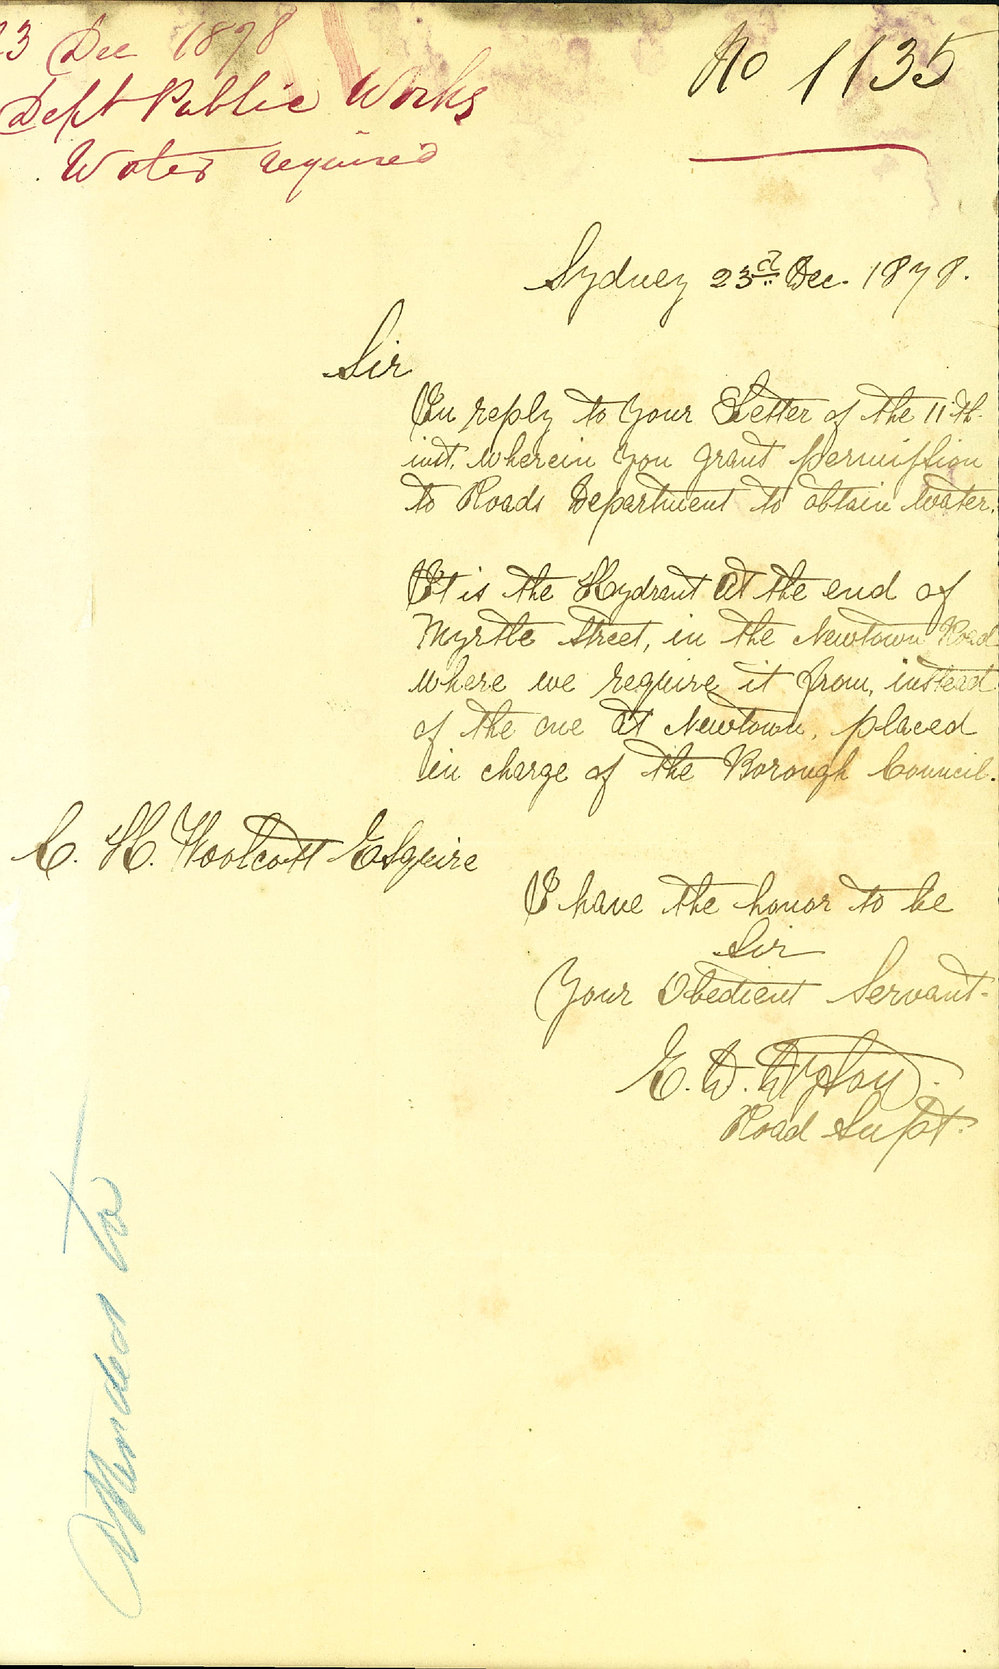 23 Dec 1878
Dept Public Works
Water required
No 1135
Sydney 23rd Dec. 1878.
Sir
In reply to your Letter of the 11th.
inst. wherein you grant permission
to Roads Department to obtain water.
It is the Hydrant at the end of
Myrtle Street, in the Newtown Road
where we require it from, instead
of the one at Newtown, placed
in charge of the Borough Council.
C. H. Woolcott Esquire
I have the honor to be
Sir
Your Obedient Servant.
E. W.
Road Supt.
Attended to